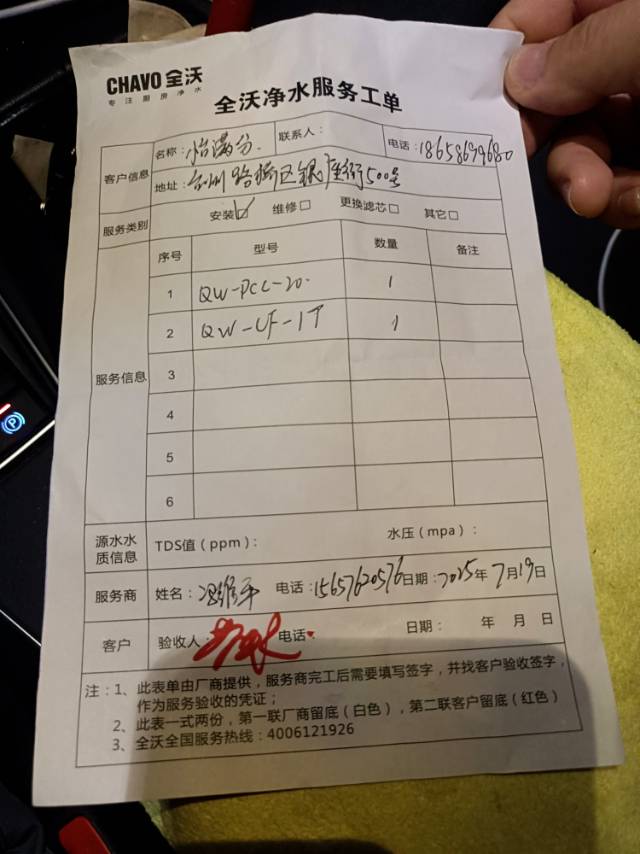 CHAVO 全沃
专注厨房净水
全沃净水服务工单
客户信息
名称：怡满分. 联系人： 电话：18658699680
地址：台州路桥区银座街500号
服务类别 安装☑ 维修□ 更换滤芯□ 其它□
服务信息
序号 型号 数量 备注
1 QW-PCC-20. 1
2 QW-UF-1T 1
3
4
5
6
源水水质信息 TDS值（ppm）： 水压（mpa）：
服务商 姓名： 电话：15657620576 日期：2025年7月19日
客户 验收人： 电话： 日期： 年 月 日
注：1、此表单由厂商提供，服务商完工后需要填写签字，并找客户验收签字，
作为服务验收的凭证；
2、此表一式两份，第一联厂商留底（白色），第二联客户留底（红色）
3、全沃全国服务热线：4006121926